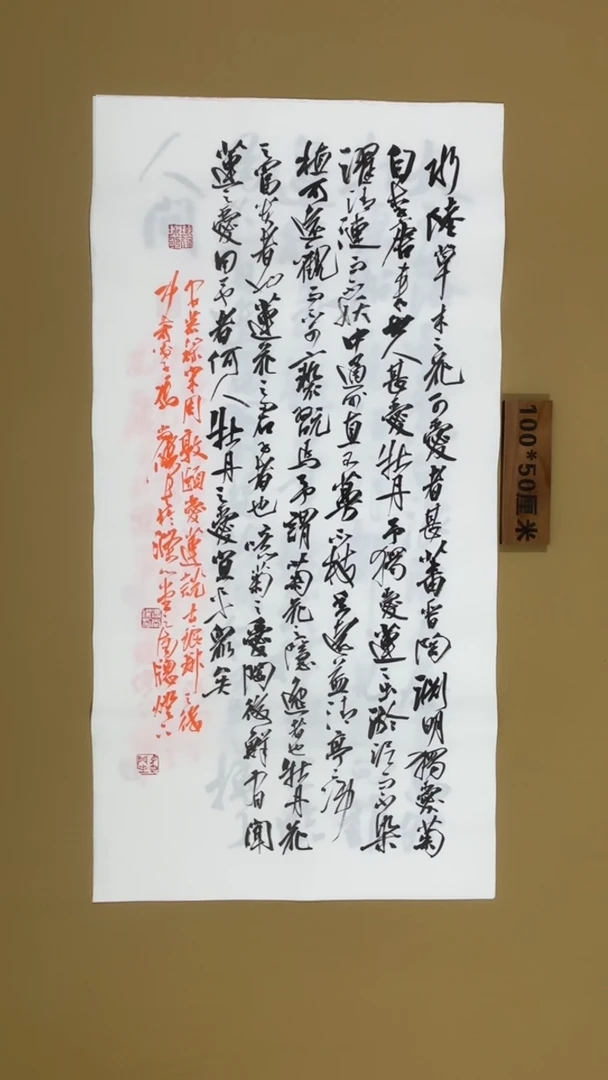 水陸草木之花可愛者甚蕃晉陶淵明獨愛菊
自李唐來世人甚愛牡丹予獨愛蓮之出淤泥而不染
濯清漣而不妖中通外直不蔓不枝香遠益清亭亭淨
植可遠觀而不可褻翫焉予謂菊花之隱逸者也牡丹花
之富貴者也蓮花之君子者也噫菊之愛陶後鮮有聞
蓮之愛同予者何人牡丹之愛宜乎眾矣
宋周敦頤愛蓮說
燈下
100*50厘米